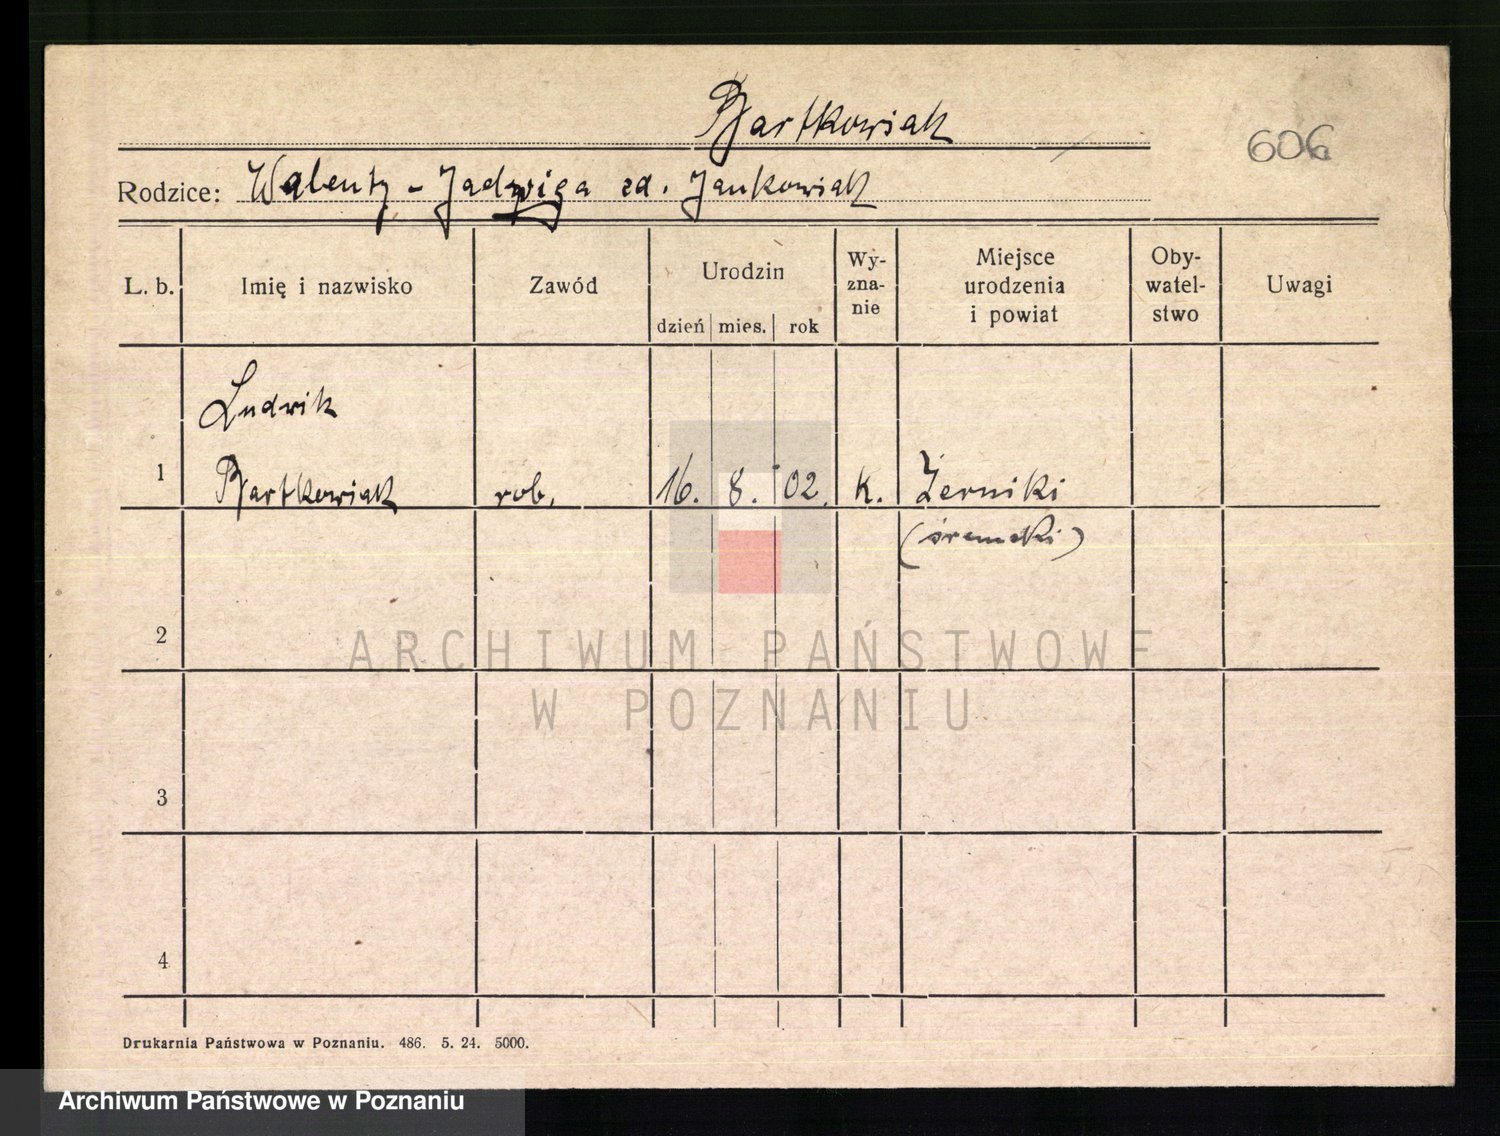 Bartkowiak
606
Rodzice: Walenty - Jadwiga zd. Jankowiak
L. b. Imię i nazwisko Zawód Urodzin dzień mies. rok Wy-zna-nie Miejsce urodzenia i powiat Oby-watel-stwo Uwagi
Ludwik
1 Bartkowiak rob. 16. 8. 02. k. Żerniki
(śremski)
2
ARCHIWUM PAŃSTWOWE
W POZNANIU
3
4
Drukarnia Państwowa w Poznaniu. 486. 5. 24. 5000.
Archiwum Państwowe w Poznaniu